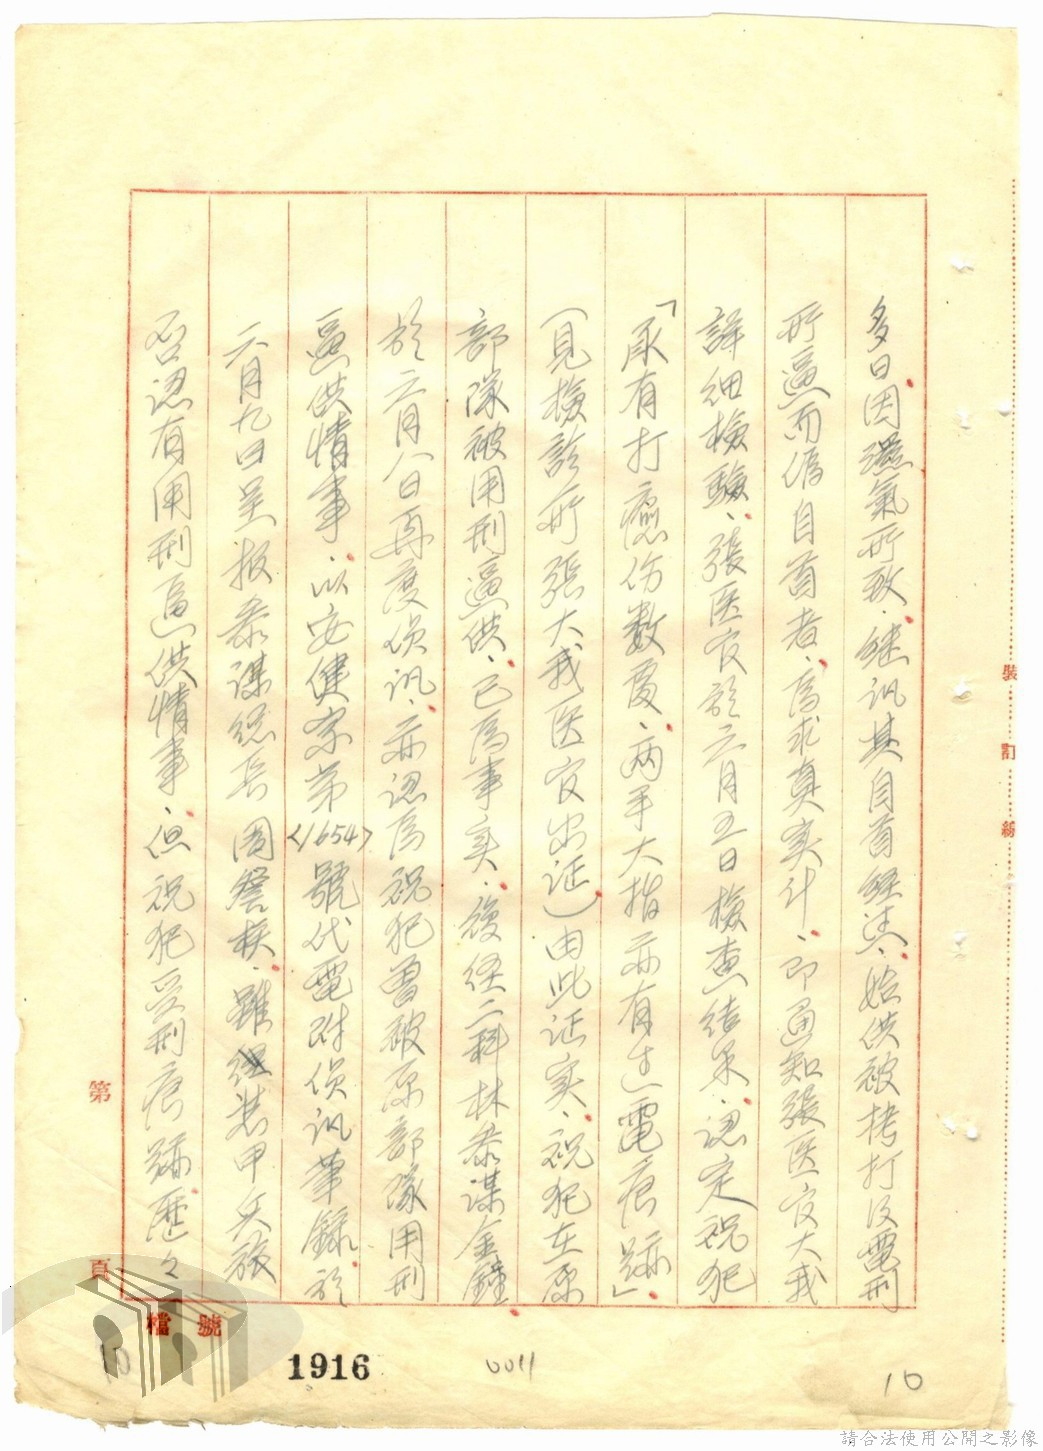 多日因濕氣所致、繼訊其自首經過、始供被拷打及電刑
所逼而偽自首者、為求真实计、即通知張医官大我
詳細檢驗、張医官於六月五日檢查结果、認定祝犯
「承有打癒伤数處、两手大指亦有过電痕跡」、
(見檢診所張大我医官出证)由此证实、祝犯在原
部隊被用刑逼供、已為事实、後经二科林參謀金鐘
於六月八日再度侦讯、亦認為祝犯曾被原部隊用刑
逼供情事、以安健京第<1654>號代電附侦讯筆錄於
六月九日呈报參謀總長 周詧核、雖经装甲兵旅
否認有用刑逼供情事、但祝犯受刑痕跡歷々
裝 訂 線
第 頁
檔 號
10
1916
0011
10
請合法使用公開之影像